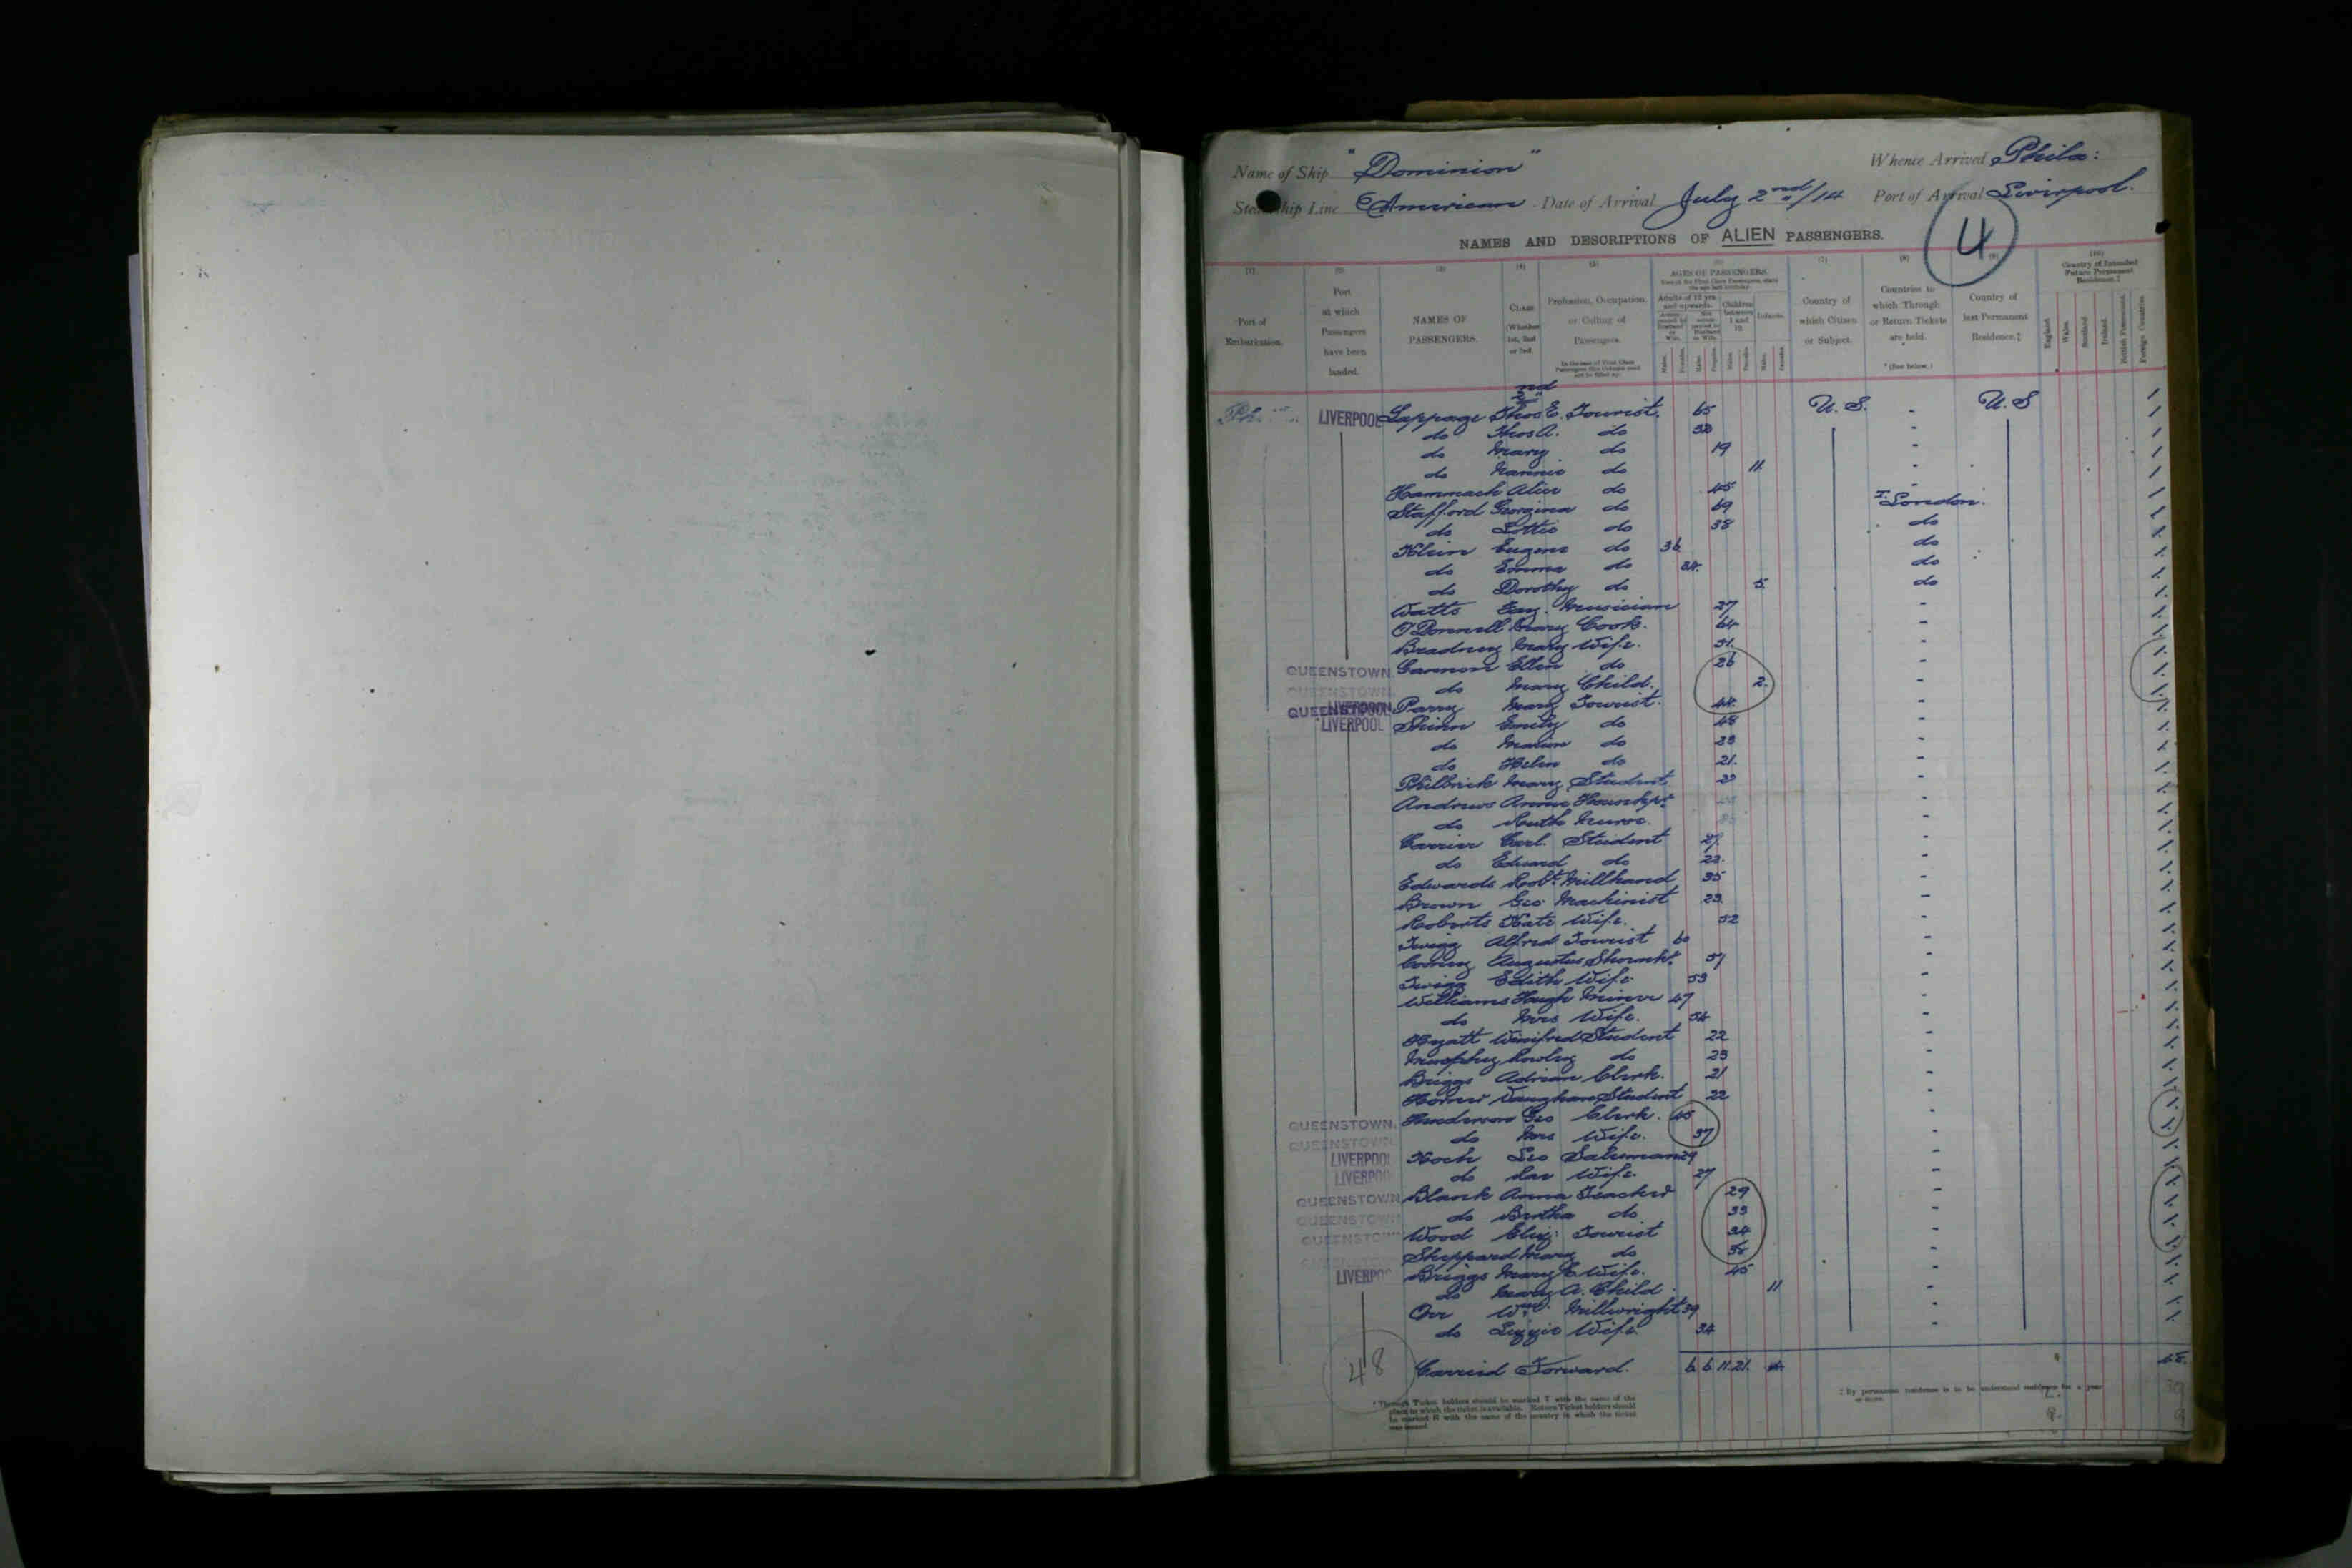 Name of Ship "Dominion" Whence Arrived Phila:
Steamship Line American Date of Arrival July 2nd/14 Port of Arrival Liverpool.
4
NAMES AND DESCRIPTIONS OF ALIEN PASSENGERS.
(1) (2) (3) (4) (5) (6) (7) (8) (9) (10)
Port of Embarkation.
Port at which Passengers have been landed.
NAMES OF PASSENGERS.
CLASS (Whether 1st, 2nd or 3rd
Profession, Occupation, or Calling of Passengers.
In the case of First Class Passengers this Column need not be filled up
AGES OF PASSENGERS
Adults of 12 yrs. and upwards. Children between 1 and 12. Infants.
Country of which Citizen or Subject.
Countries to which Through or Return Tickets are held.
* (See below.)
Country of last Permanent Residence.‡
Country of Intended Future Permanent Residence.‡
England. Wales. Scotland. Ireland. British Possessions. Foreign Countries.
2nd
LIVERPOOL Lappage Thos E. Tourist. 65 U.S. - U.S
do Thos A. do 30 -
do Mary do 19 -
do Nannie do 11 -
Hammach Alice do 45 -
Stafford Georgina do 69 T. London.
do Lottie do 38 do
Klein Eugene do 36 do
do Emma do 34. do
do Dorothy do 5 do
Watts Musician 27 -
O'Donnell Mary Cook. 64 -
Mary Wife. 31. -
QUEENSTOWN. Cannon Ellen do 26 -
QUEENSTOWN. do Mary Child. 2. -
QUEENSTOWN LIVERPOOL Parry Mary Tourist. 44. -
LIVERPOOL Shinn Emily do 48 -
do Marion do 23 -
do Helen do 21. -
Philbrick Mary Student -
Andrews Annie -
do Ruth Nurse. -
Carrier Carl. Student 27. -
do Edward do 22. -
Edwards Robt. Millhand 35 -
Brown Geo Machinist 23. -
Roberts Kate Wife. 52 -
Twigg Alfred Tourist 60 -
Augustus 51 -
Twigg Edith Wife 53 -
Williams Hugh Miner 47 -
do Mrs Wife. 54 -
Hyatt Winifred Student 22 -
Murphy do 23 -
Briggs Adrian Clerk. 21 -
Horner Vaughan Student 22 -
QUEENSTOWN. Henderson Geo Clerk. 45 -
QUEENSTOWN. do Mrs Wife. 37 -
LIVERPOOL Koch Leo Salesman 29 -
LIVERPOOL do Wife. 27 -
QUEENSTOWN Blank Anna Teacher 29 -
QUEENSTOWN do Bertha do 33 -
QUEENSTOWN Wood Eliz: Tourist 34 -
Sheppard Mary do 38 -
LIVERPOOL Briggs Mary E Wife. 45 -
do Mary A. Child 11 -
Orr Wm. Millwright 39 -
do Lizzie Wife 34 -
48 Carried Forward. 6 6 11. 21. 4. 48.
* Through Ticket holders should be marked T with the name of the place to which the ticket is available. Return Ticket holders should be marked R with the name of the country in which the ticket was issued.
‡ By permanent residence is to be understood residence for a year or more.